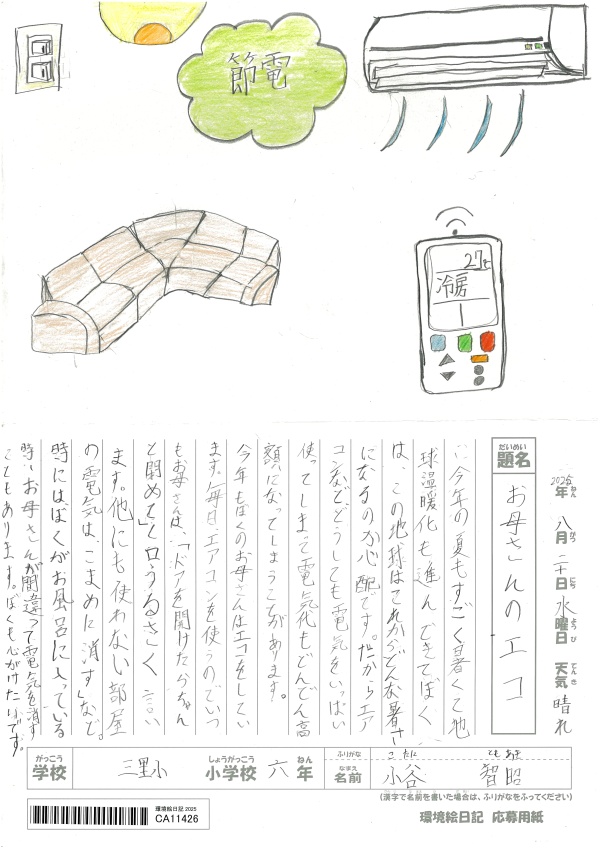 節電
27℃
冷房
だいめい
題名
お母さんのエコ
2025年 八月 二十日 水曜日 天気 晴れ
ねん がつ にち ようび てんき
今年の夏もすごく暑くて地
球温暖化も進んできてぼく
は、この地球はこれからどんな暑さ
になるのか心配です。だからエア
コンなど、どうしても電気をいっぱい
使ってしまって電気代もどんどん高
額になってしまうことがあります。
今年もぼくのお母さんはエコをしてい
ます。毎日エアコンを使うのでいつ
もお母さんは、「ドアを開けたらちゃん
と閉めて」と口うるさく言い
ます。他にも使わない部屋
の電気は、こまめに消すなど。
時にはぼくがお風呂に入っている
時に、お母さんが間違って電気を消す
こともあります。ぼくも心がけたいです。
がっこう
学校
三里小
しょうがっこう
小学校
六
ねん
年
ふりがな
こたに ともあき
なまえ
名前
小谷 智昭
(漢字で名前を書いた場合は、ふりがなをふってください)
環境絵日記 2025
CA11426
環境絵日記 応募用紙